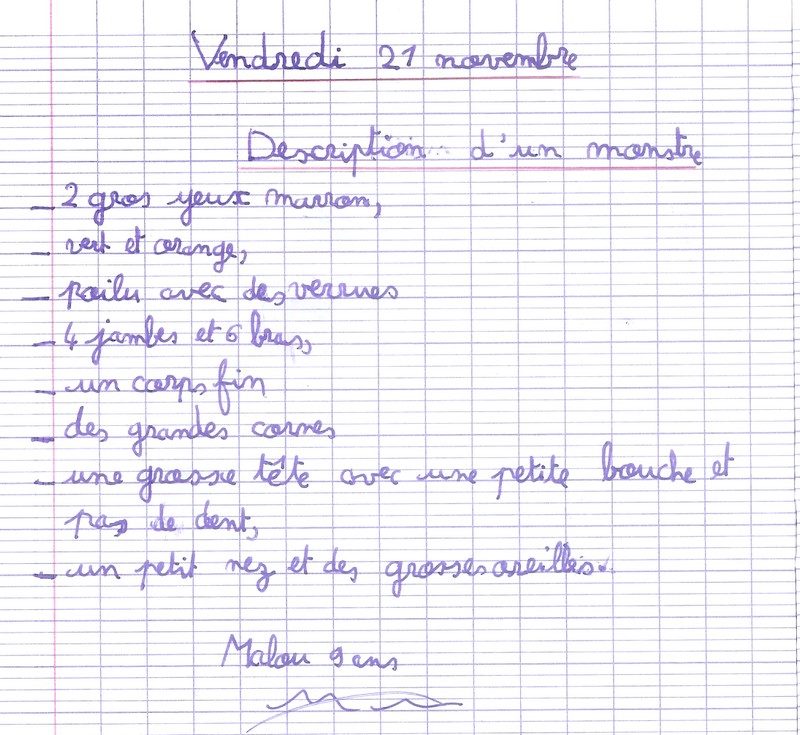 Vendredi 21 novembre
Description d'un monstre
_ 2 gros yeux marron,
_ vert et orange,
_ poilu avec des verrues
_ 4 jambes et 6 bras,
_ un corps fin
_ des grandes cornes
_ une grosse tête avec une petite bouche et
pas de dent,
_ un petit nez et des grosses oreilles.
Malou 9 ans